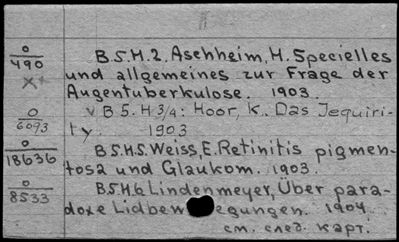 O
490
X+
B 5.H.2. Aschheim, H. Specielles
und allgemeines zur Frage der
Augentuberkulose. 1903.
O
6093
v B 5. H 3/4: Hoor, K. Das Jequiri-
ty. 1903
O
18636
B 5.H.5. Weiss, E. Retinitis pigmen-
tosa und Glaukom. 1903.
O
8533
B.5.H.6 Lindenmeyer, Über para-
doxe Lidbewegungen. 1904.
см. след. карт.